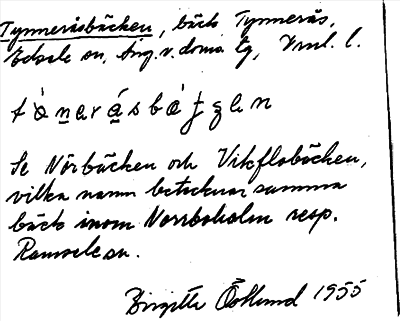 Tynneråsbäcken, bäck Tynnerås,
Edsele sn, Ång. v. doms lg, Vnl. l.
Se Nörbäcken och Vitflobäcken,
vilka namn betecknar samma
bäck inom Norrboholm resp.
Ramsele sn.
Birgitta Östlund 1955